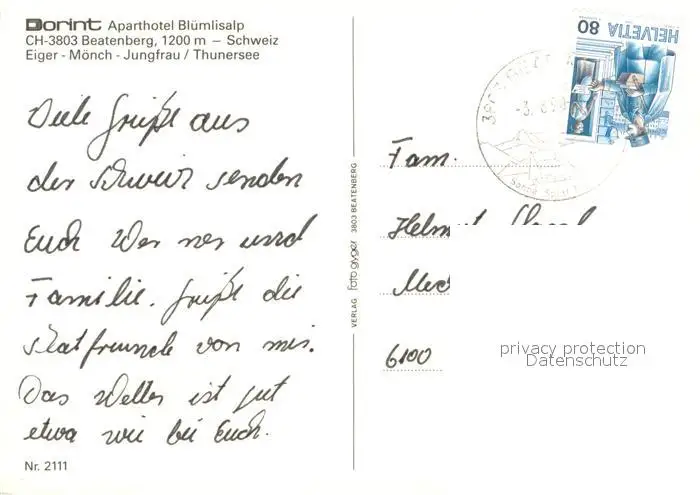 Dorint Aparthotel Blümlisalp
CH-3803 Beatenberg, 1200 m – Schweiz
Eiger - Mönch - Jungfrau / Thunersee
Viele Grüße aus
der Schweiz senden
Euch Werner und
Familie. Grüße die
Skatfreunde von mir.
Das Wetter ist gut
etwa wie bei Euch.
Nr. 2111
VERLAG foto gyger 3803 BEATENBERG
HELVETIA 80
Fam.
Helmut
6100
privacy protection
Datenschutz